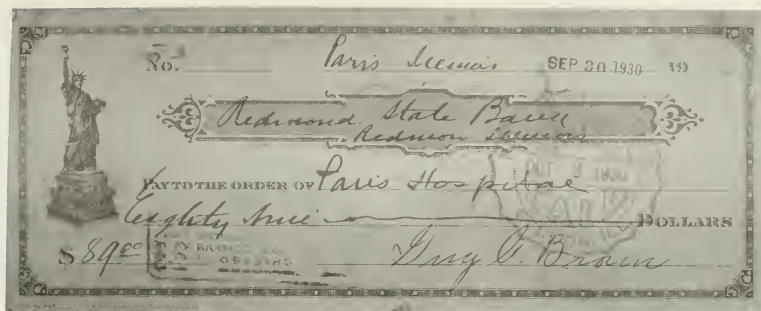 No. Paris Illinois SEP 20 1930 19
Redmond State Bank
Redmon Illinois
PAY TO THE ORDER OF Paris Hospital
Eighty Nine DOLLARS
$ 89.00 Guy C. Brown